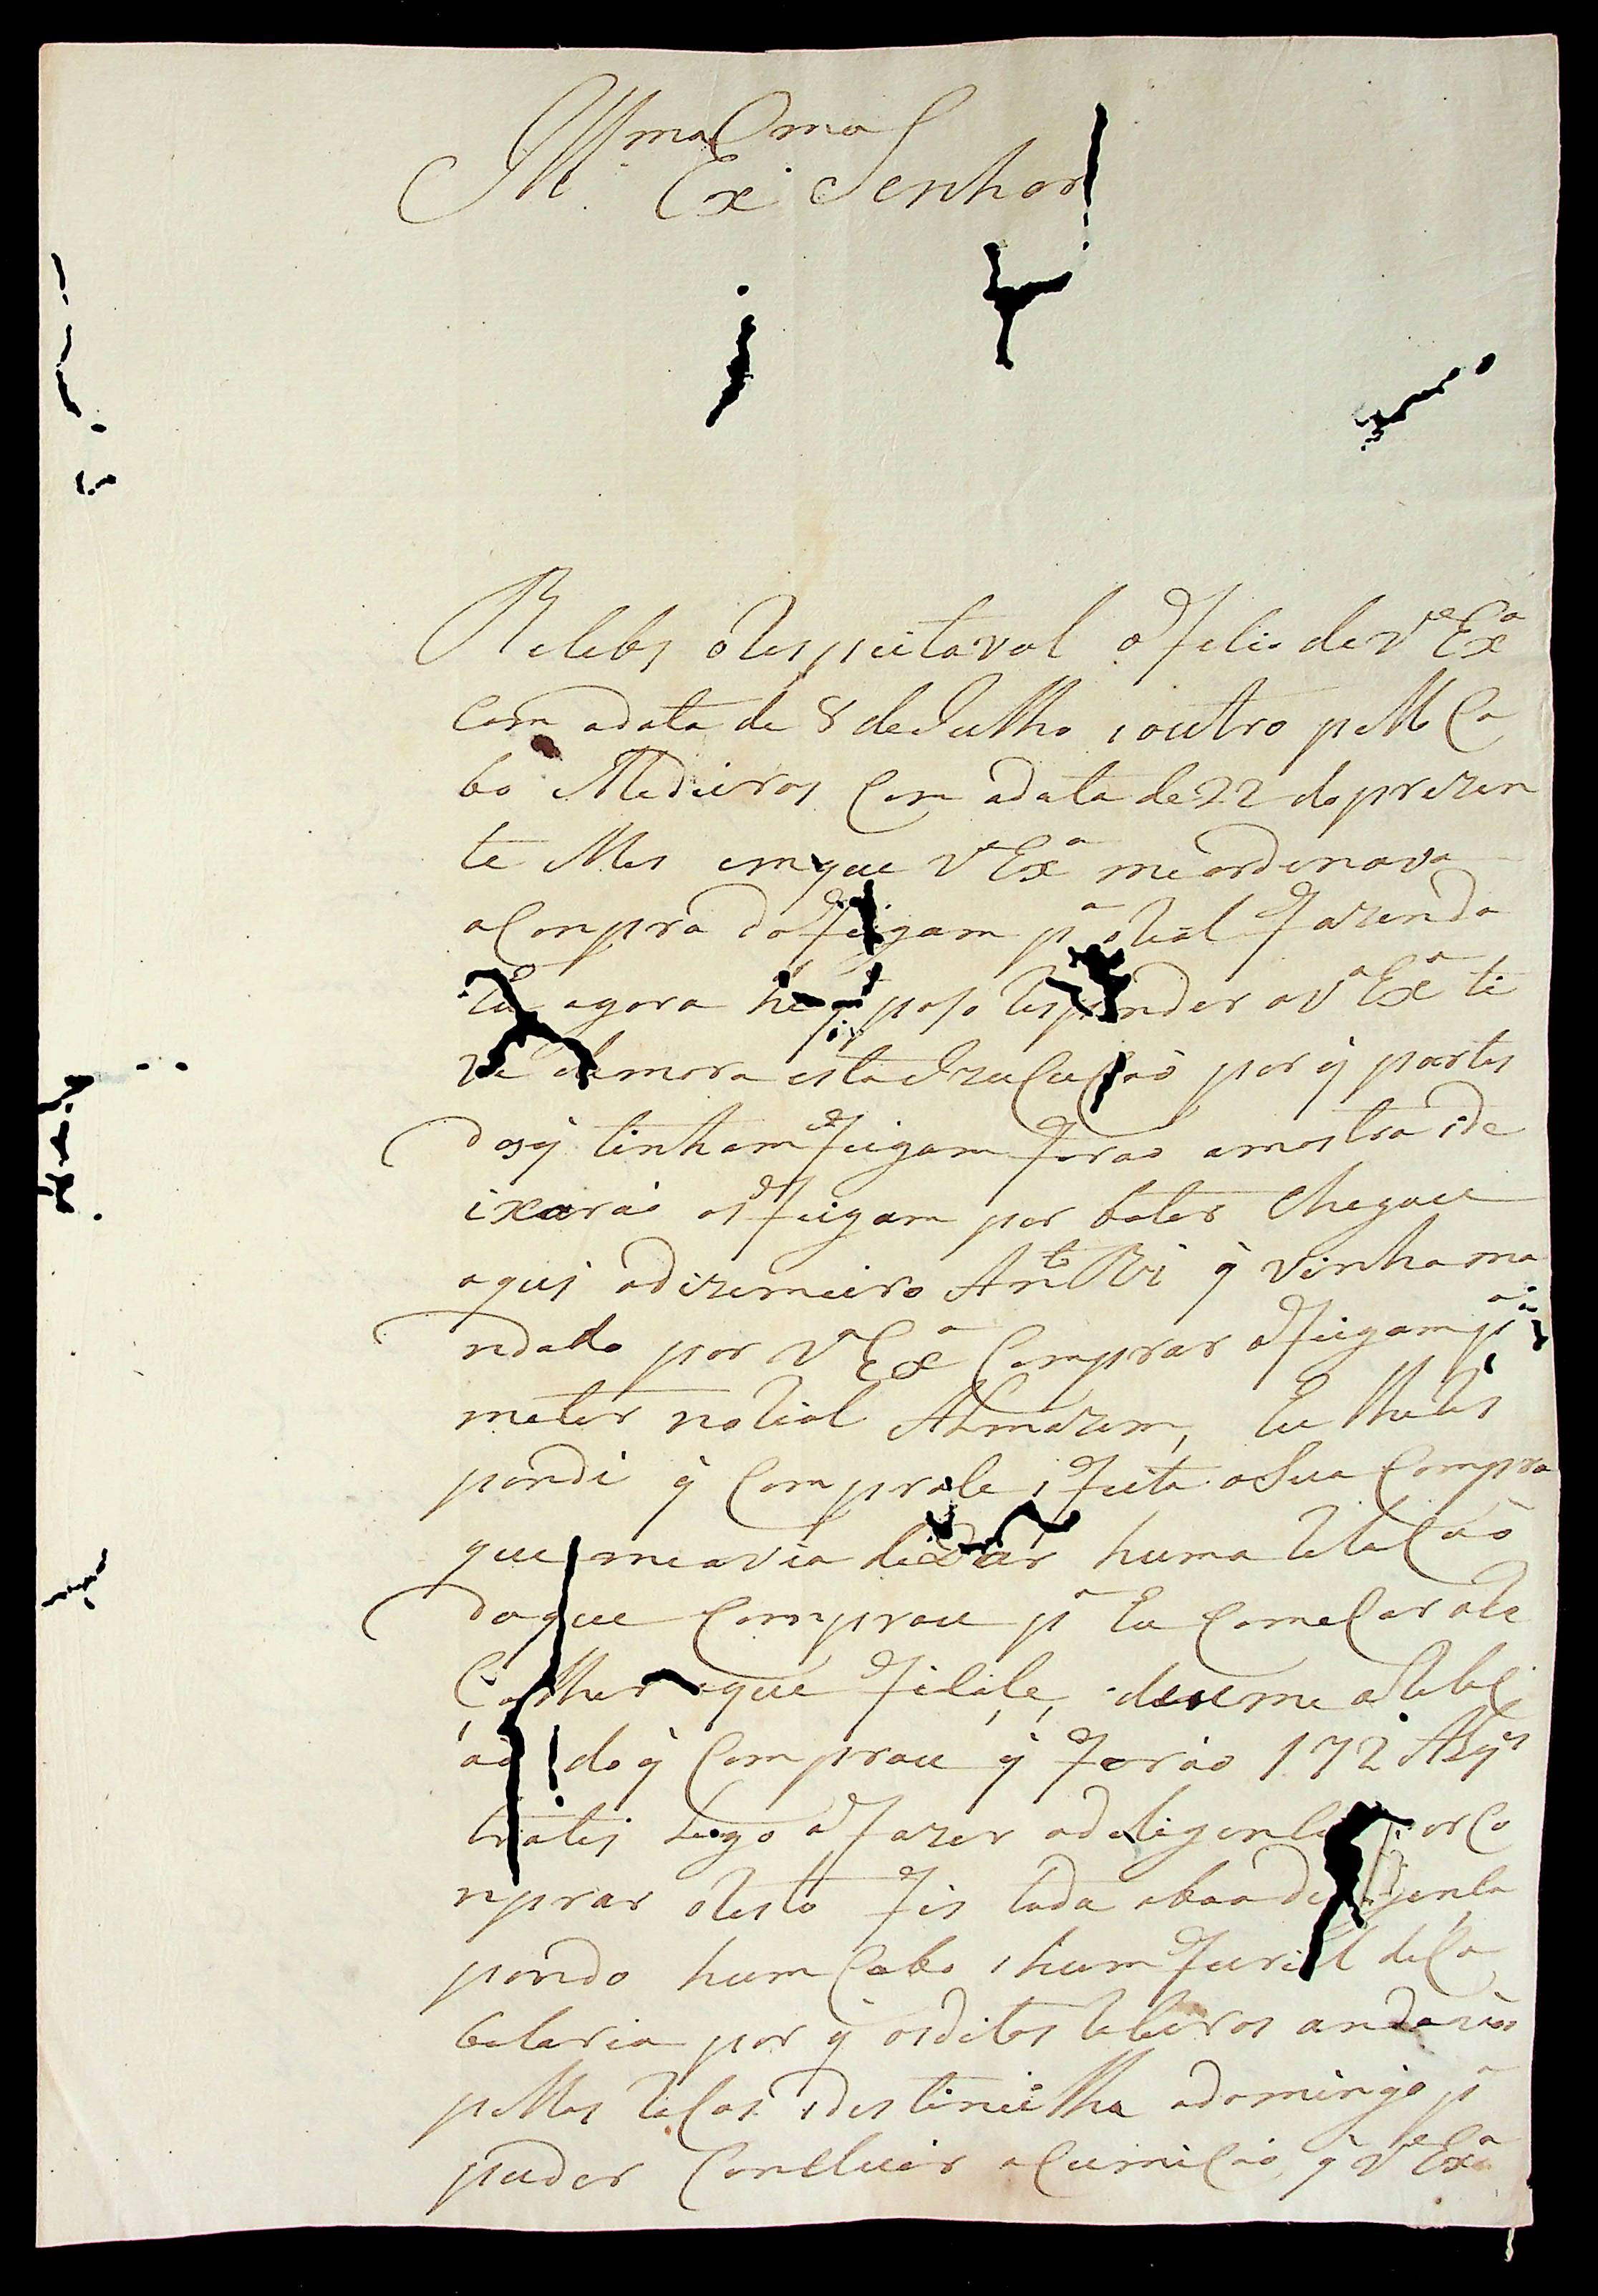 Illmo Exmo Senhor
Recebi o Respeitavel offecio de V Exa
Com a data de 8 de Julho, i outro pello Ca
bo Medeiros Com a data de 22 do prezen
te Mes em que V Exa me ordenava
a Compra do feigam pa o Rial fazenda
Eu agora he q poso Responder a V Exa te
ve demora esta Izecucão por q partes
dos q tinham feigam forão amostra i de
ixarão os feigam por bater Chegou
aqui o dizemeiro Anto Roi q vinha ma
ndado por V Exa Comprar o feigam pa
meter no Rial Almazem, Eu lhe Res
pondi q Comprase i feita a Sua Compra
que me avia de dar huma Relacão
do que Comprou pa Eu Comecar a Re
Colher o que ficáse, deume a Relac
ão do q Comprou q forão 172 Alqs
tratei Logo a fazer a deligencia por Co
nprar o Resto fis toda a boa deligencia
pondo hum Cabo i hum furiel de Ca
belaria por q os ditos Roceiros andavão
pellas Rocas i destineilha o domingo pa
puder Concluir a Cumicão q V Exa